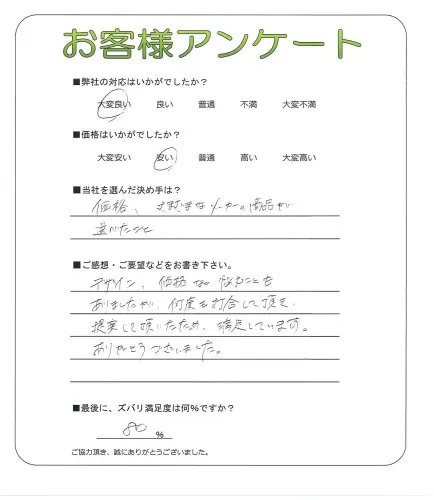 お客様アンケート
■弊社の対応はいかがでしたか？
大変良い 良い 普通 不満 大変不満
■価格はいかがでしたか？
大変安い 安い 普通 高い 大変高い
■当社を選んだ決め手は？
価格、 メーカーの商品が
選べたこと
■ご感想・ご要望などをお書き下さい。
デザイン、価格など悩むことも
ありましたが、何度も打合して頂き、
提案して頂いたため、満足しています。
ありがとうございました。
■最後に、ズバリ満足度は何%ですか？
80 %
ご協力頂き、誠にありがとうございました。